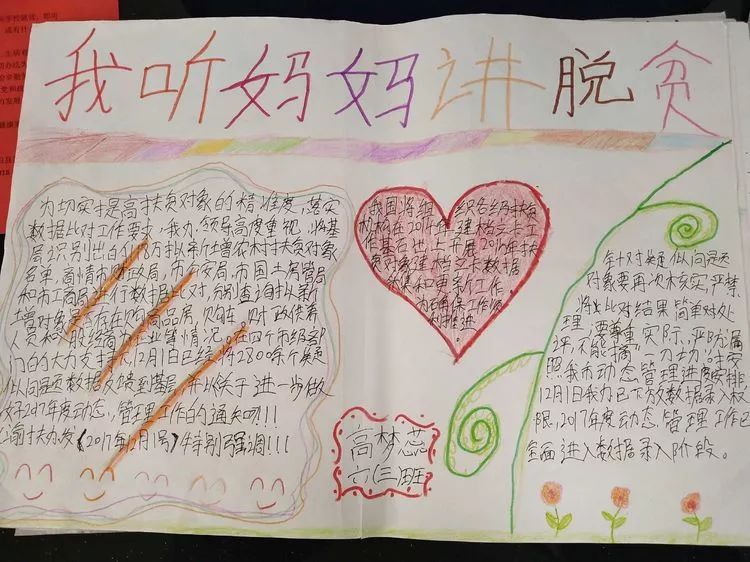 我听妈妈讲脱贫
为切实提高扶贫对象的精准度，落实
数据比对工作要求，我办领导高度重视，将基
层识别出的1.78万拟新增农村扶贫对象
名单，商情市财政局，市公安局，市国土房管局
和市工商局进行数据比对，分别查询拟新
增对象是否存在购商品房，购车，财政供养
人员和入股经商办企业等情况。在四个市级部
门的大力支持下12月1日已经将2800余个疑
似问题数据反馈到基层，并以关于进一步做
好2017年度动态，管理工作的通知！！！
渝扶办发《2017年12月1号》特别强调！！！
我国将组织各级扶贫
机构在2014年建档立卡
工作基石出上开展2016年扶
贫对象建档立卡数据
采集和更新工作
为确保工作顺
利推进
针对疑似问题
对象要再次核实，严禁
将比对结果简单对处
理，要尊重实际，严防漏
评，不能搞"一刀切"。
照我市动态管理进度安排
12月1日我办已下放数据录入权
限，2017年度动态，管理工作已
全面进入数据录入阶段。
高梦蕊
六(三)班